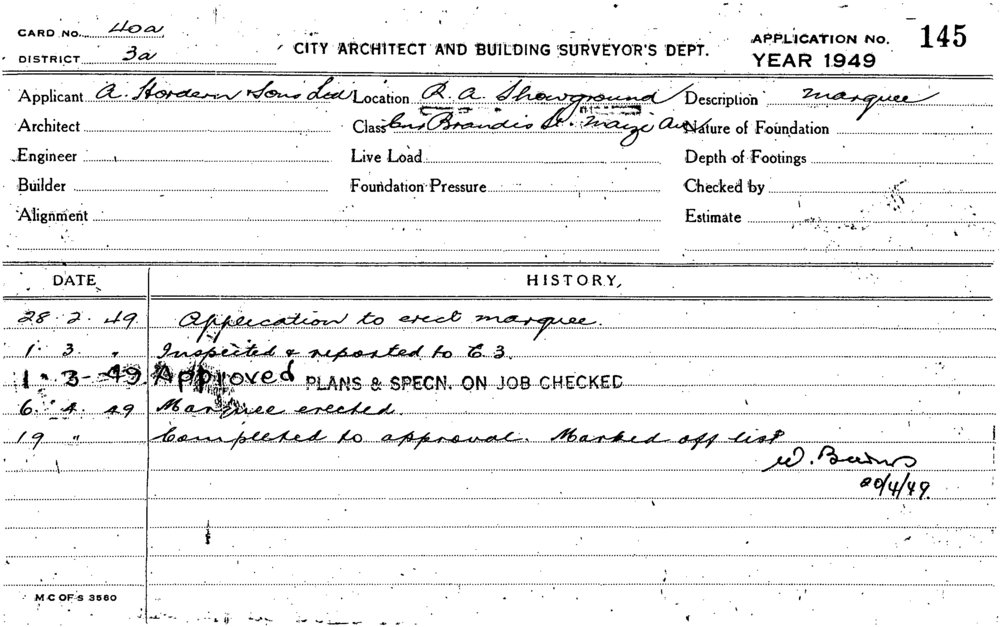 CARD NO. 40a
DISTRICT 3a
CITY ARCHITECT AND BUILDING SURVEYOR'S DEPT.
APPLICATION NO. 145
YEAR 1949
Applicant A. Hordern & Sons Ltd Location R. A. Showground Description marquee
Architect Class Cnr Brandis St. Maize Av. Nature of Foundation
Engineer Live Load Depth of Footings
Builder Foundation Pressure Checked by
Alignment Estimate
DATE HISTORY
28. 2. 49. Application to erect marquee.
1. 3. " Inspected & reported to C.3.
1. 3- 49. Approved PLANS & SPECN. ON JOB CHECKED
6. 4. 49 Marquee erected.
19 " Completed to approval. Marked off list
W.
20/4/49.
M C OF S 3560